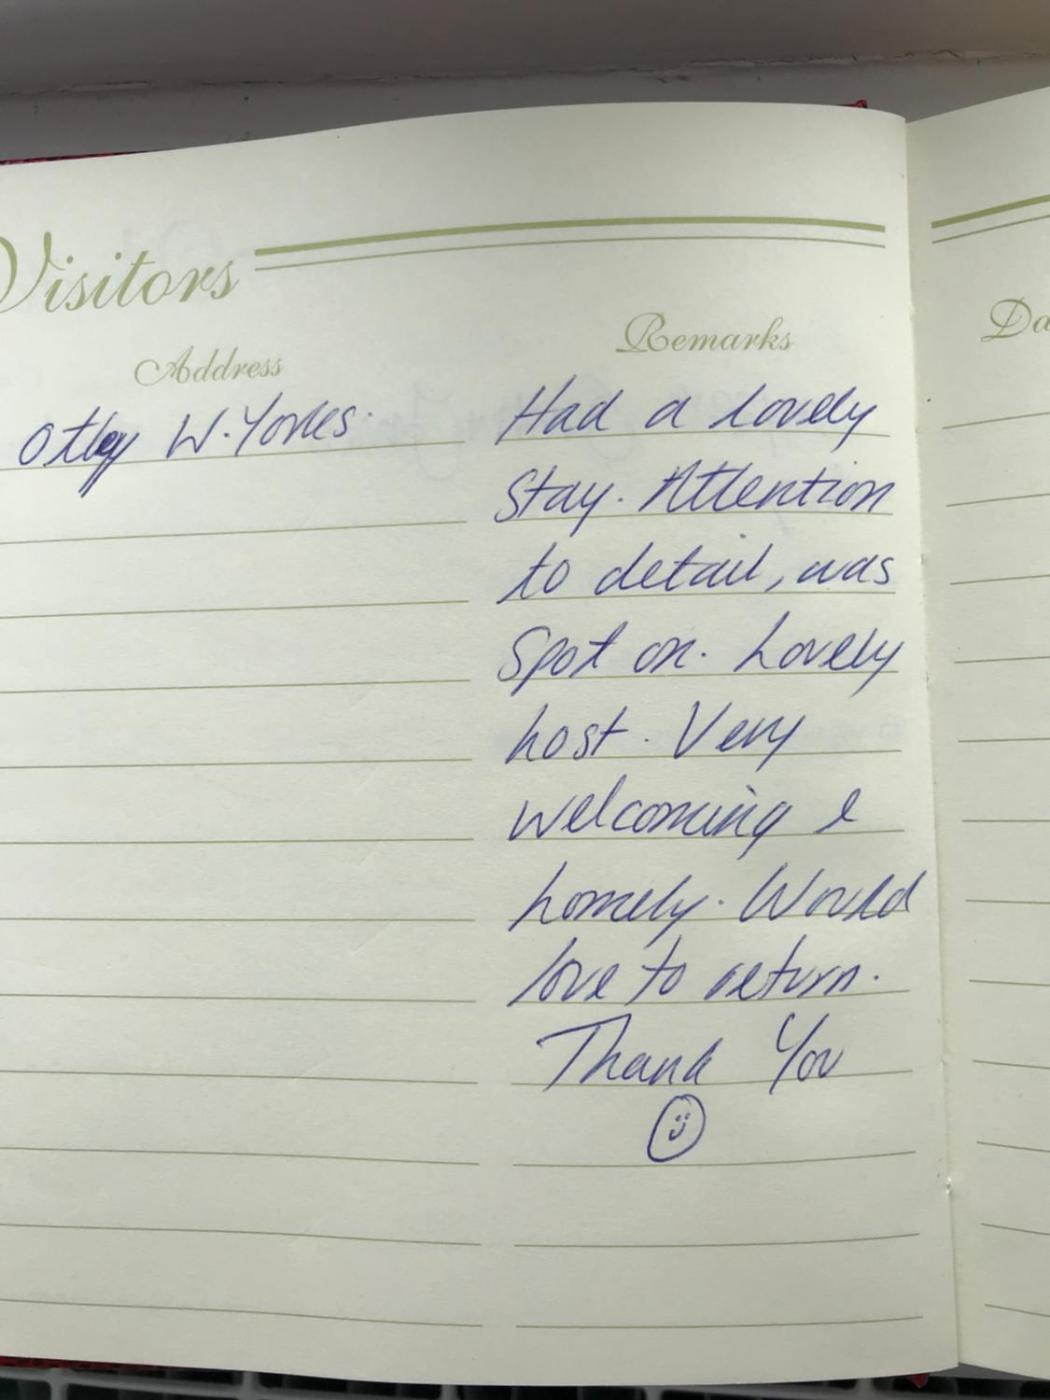 Visitors
Address
Remarks
Da
Otley W. Yorks.
Had a lovely
stay. Attention
to detail, was
spot on. Lovely
host. Very
welcoming &
homely. Would
love to return.
Thank You